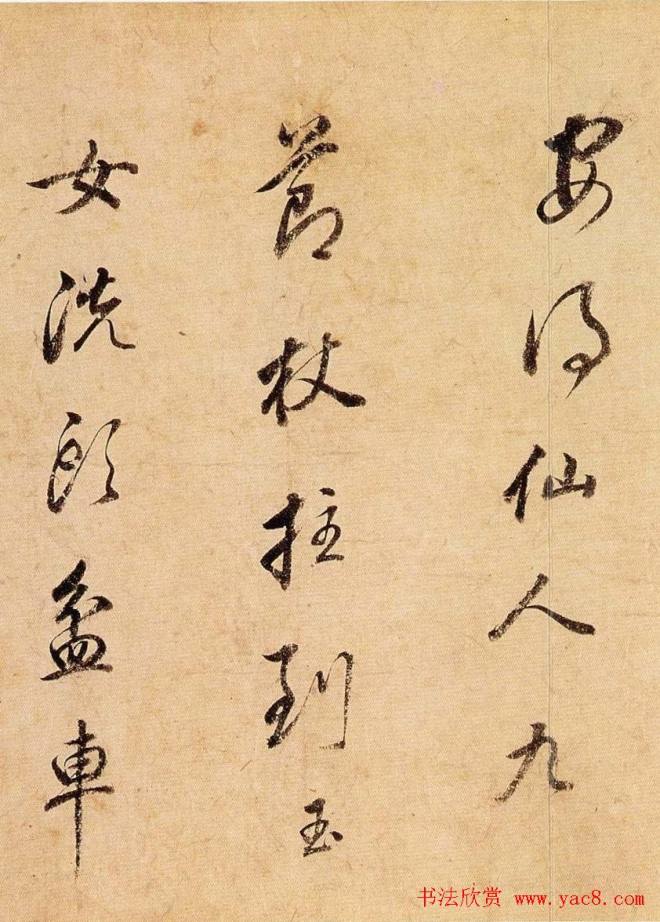 安得仙人九
節杖拄到玉
女洗頭盆車
书法欣赏 www.yac8.com